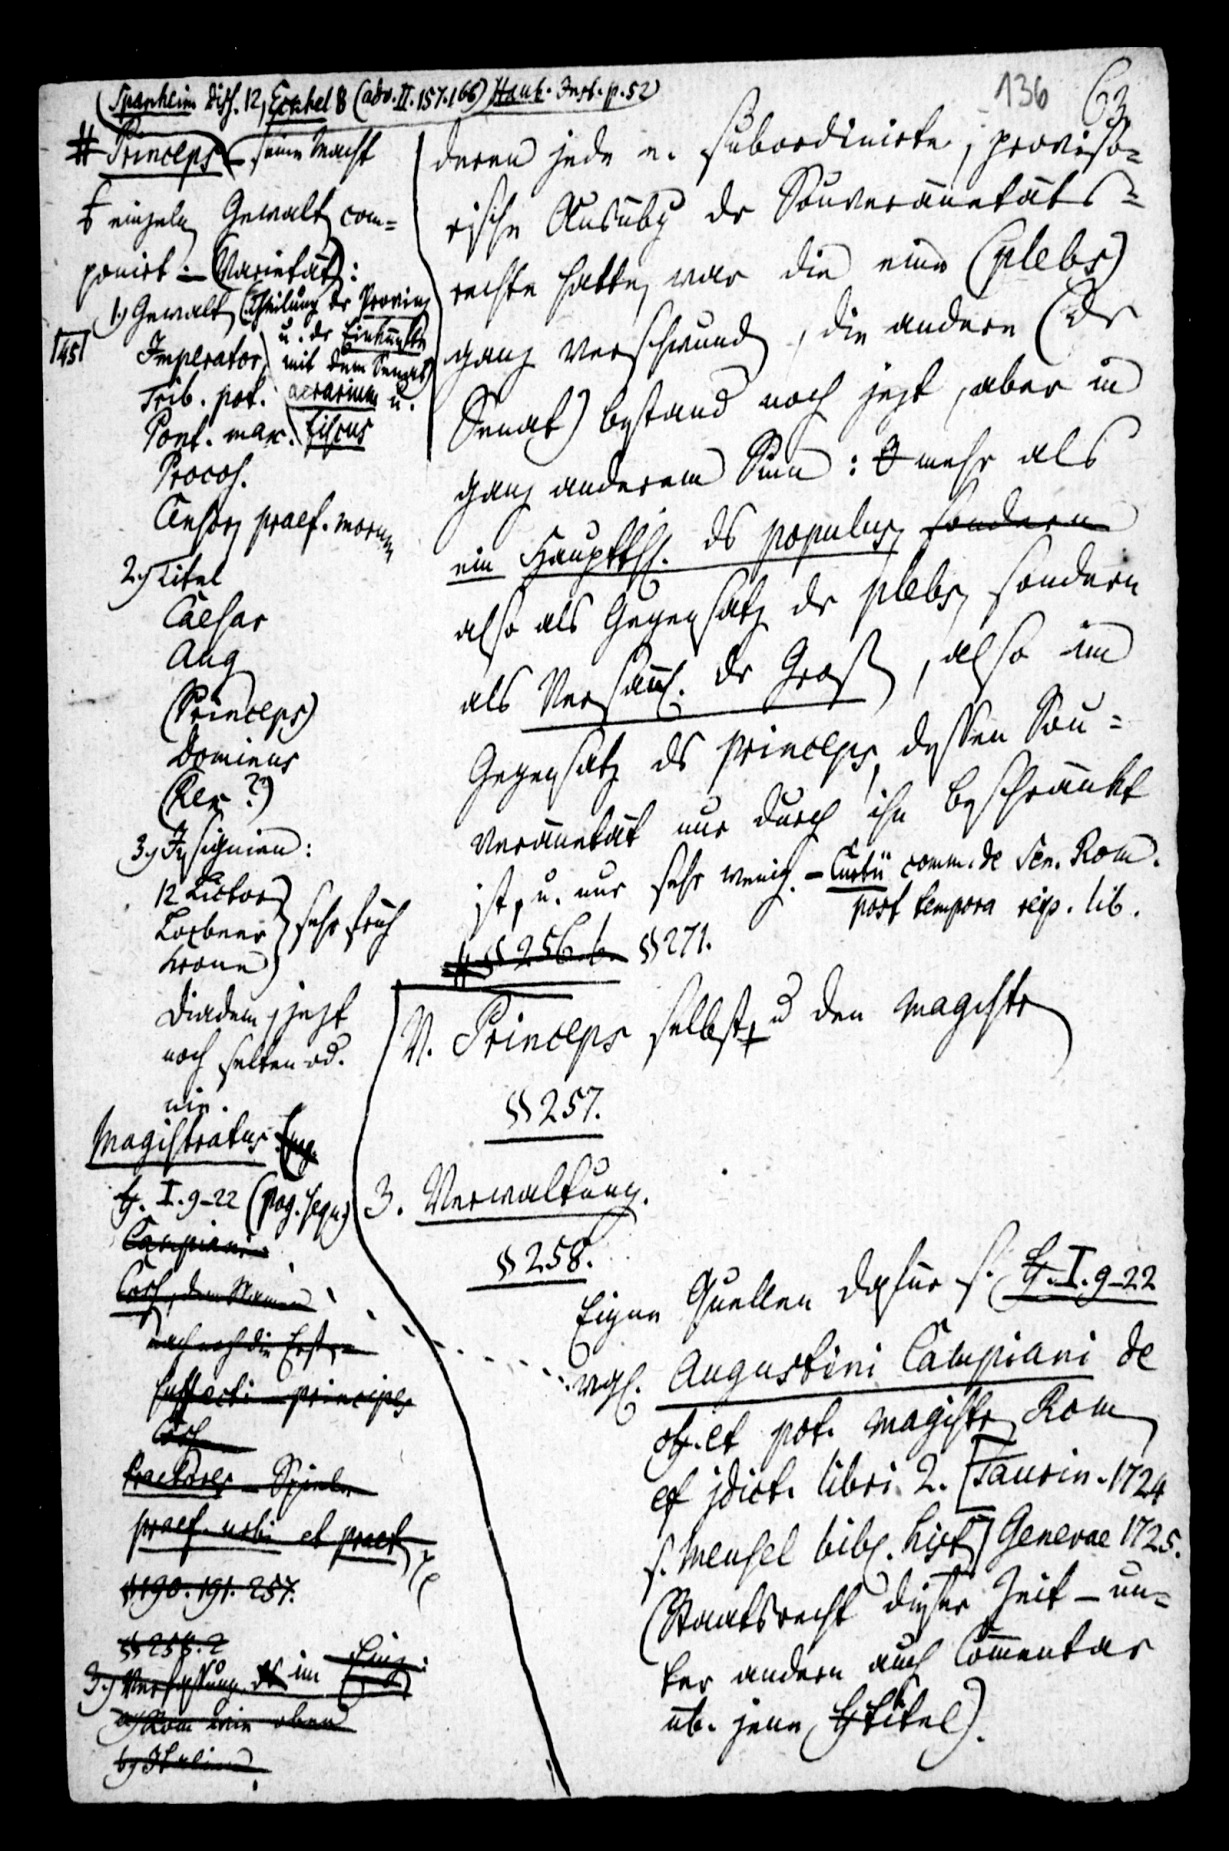 136 63.
(Spanheim Diss. 12, Eckhel 8 (adv. II. 157. 166) Haub. Inst. p. 52)
# Princeps – seine Macht
einzeln Gewalt com=
ponirt – (Varietät):
1.) Gewalt (Theilung der Provinz
u. der Einkünfte
mit dem Senat
aerarium u.
fiscus
|45|
Imperator
Trib. pot.
Pont. max.
Procos.
Censor, praef. morum
2.) Titel
Caesar
Aug
(Princeps)
Dominus
(Rex?)
3.) Insignien:
12 Lictor
Lorbeer
Krone
sehr früh
Diadem, jezt
noch selten od.
nie.
Magistratus
I. 9–22 (pag. sequ.)
Campiani
Cos, dem Namen
nach noch die Erst –
suffecti – principes
Cos
Praetores – Spiele
praef. urbi et praet
§ 190. 191. 257.
§§ 258. 2
3.) Verfassung im
a) Rom wie oben
b) Italien
deren jede e. subordinirte, proviso=
rische Ausübg dr Souveränetäts=
rechte hatte, war die eine (plebs)
ganz verschwund, die andere (dr
Senat) bestand noch jezt, aber in
ganz anderem Sinn: mehr als
ein Hauptth. ds populus, sondern
also als Gegensatz dr plebs, sondern
als Versam̄l. dr Groß, also im
Gegensatz ds princeps, dessen Sou=
veränetät nur durch ihn beschränkt
ist, u. nur sehr wenig. – Curtii comm. de Sen. Rom.
post tempora reip. lib.
# §§ 256. b. §§ 271.
V. Princeps selbst u den Magistr
§§ 257.
3. Verwaltung.
§§ 258.
Eigne Quellen dafür s. I. 9–22
vgl. Augustini Campiani de
off. et pot. magistr Rom
et jdict. libri 2. [Taurin. 1724
s. Meusel bibl. hist] Genevae 1725.
(Staatsrecht dieser Zeit – un=
ter andern auch Com̄entar
üb. jene Titel).